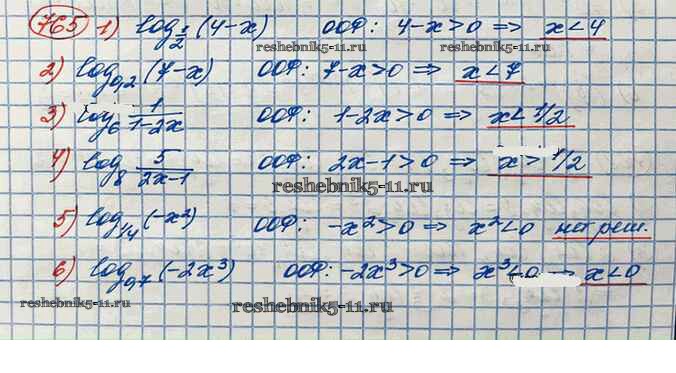 765 1) log₁/₂ (4-x) ООФ: 4-x>0 => x<4
reshebnik5-11.ru reshebnik5-11.ru
2) log₀,₂ (7-x) ООФ: 7-x>0 => x<7
3) log₆ 1/(1-2x) ООФ: 1-2x>0 => x<1/2
4) log₈ 5/(2x-1) ООФ: 2x-1>0 => x>1/2
reshebnik5-11.ru
5) log₁/₄ (-x²) ООФ: -x²>0 => x²<0 нет реш.
6) log₀,₇ (-2x³) ООФ: -2x³>0 => x³<0 → x<0
reshebnik5-11.ru reshebnik5-11.ru